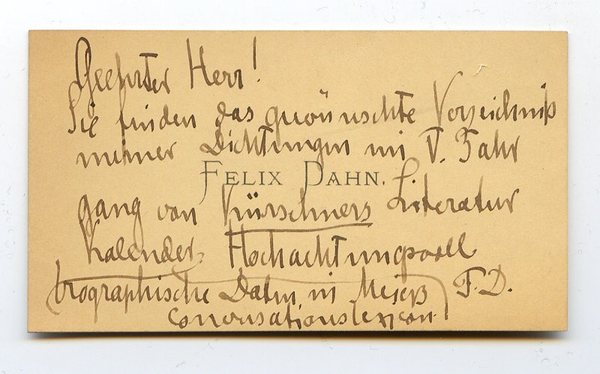 Geehrter Herr!
Sie finden das gewünschte Verzeichniß
meiner Dichtungen im V. Jahr
FELIX DAHN.
gang von Kürschners Literatur
Kalender. Hochachtungsvoll
biographische Daten in Meyers F. D.
Conversationslexicon